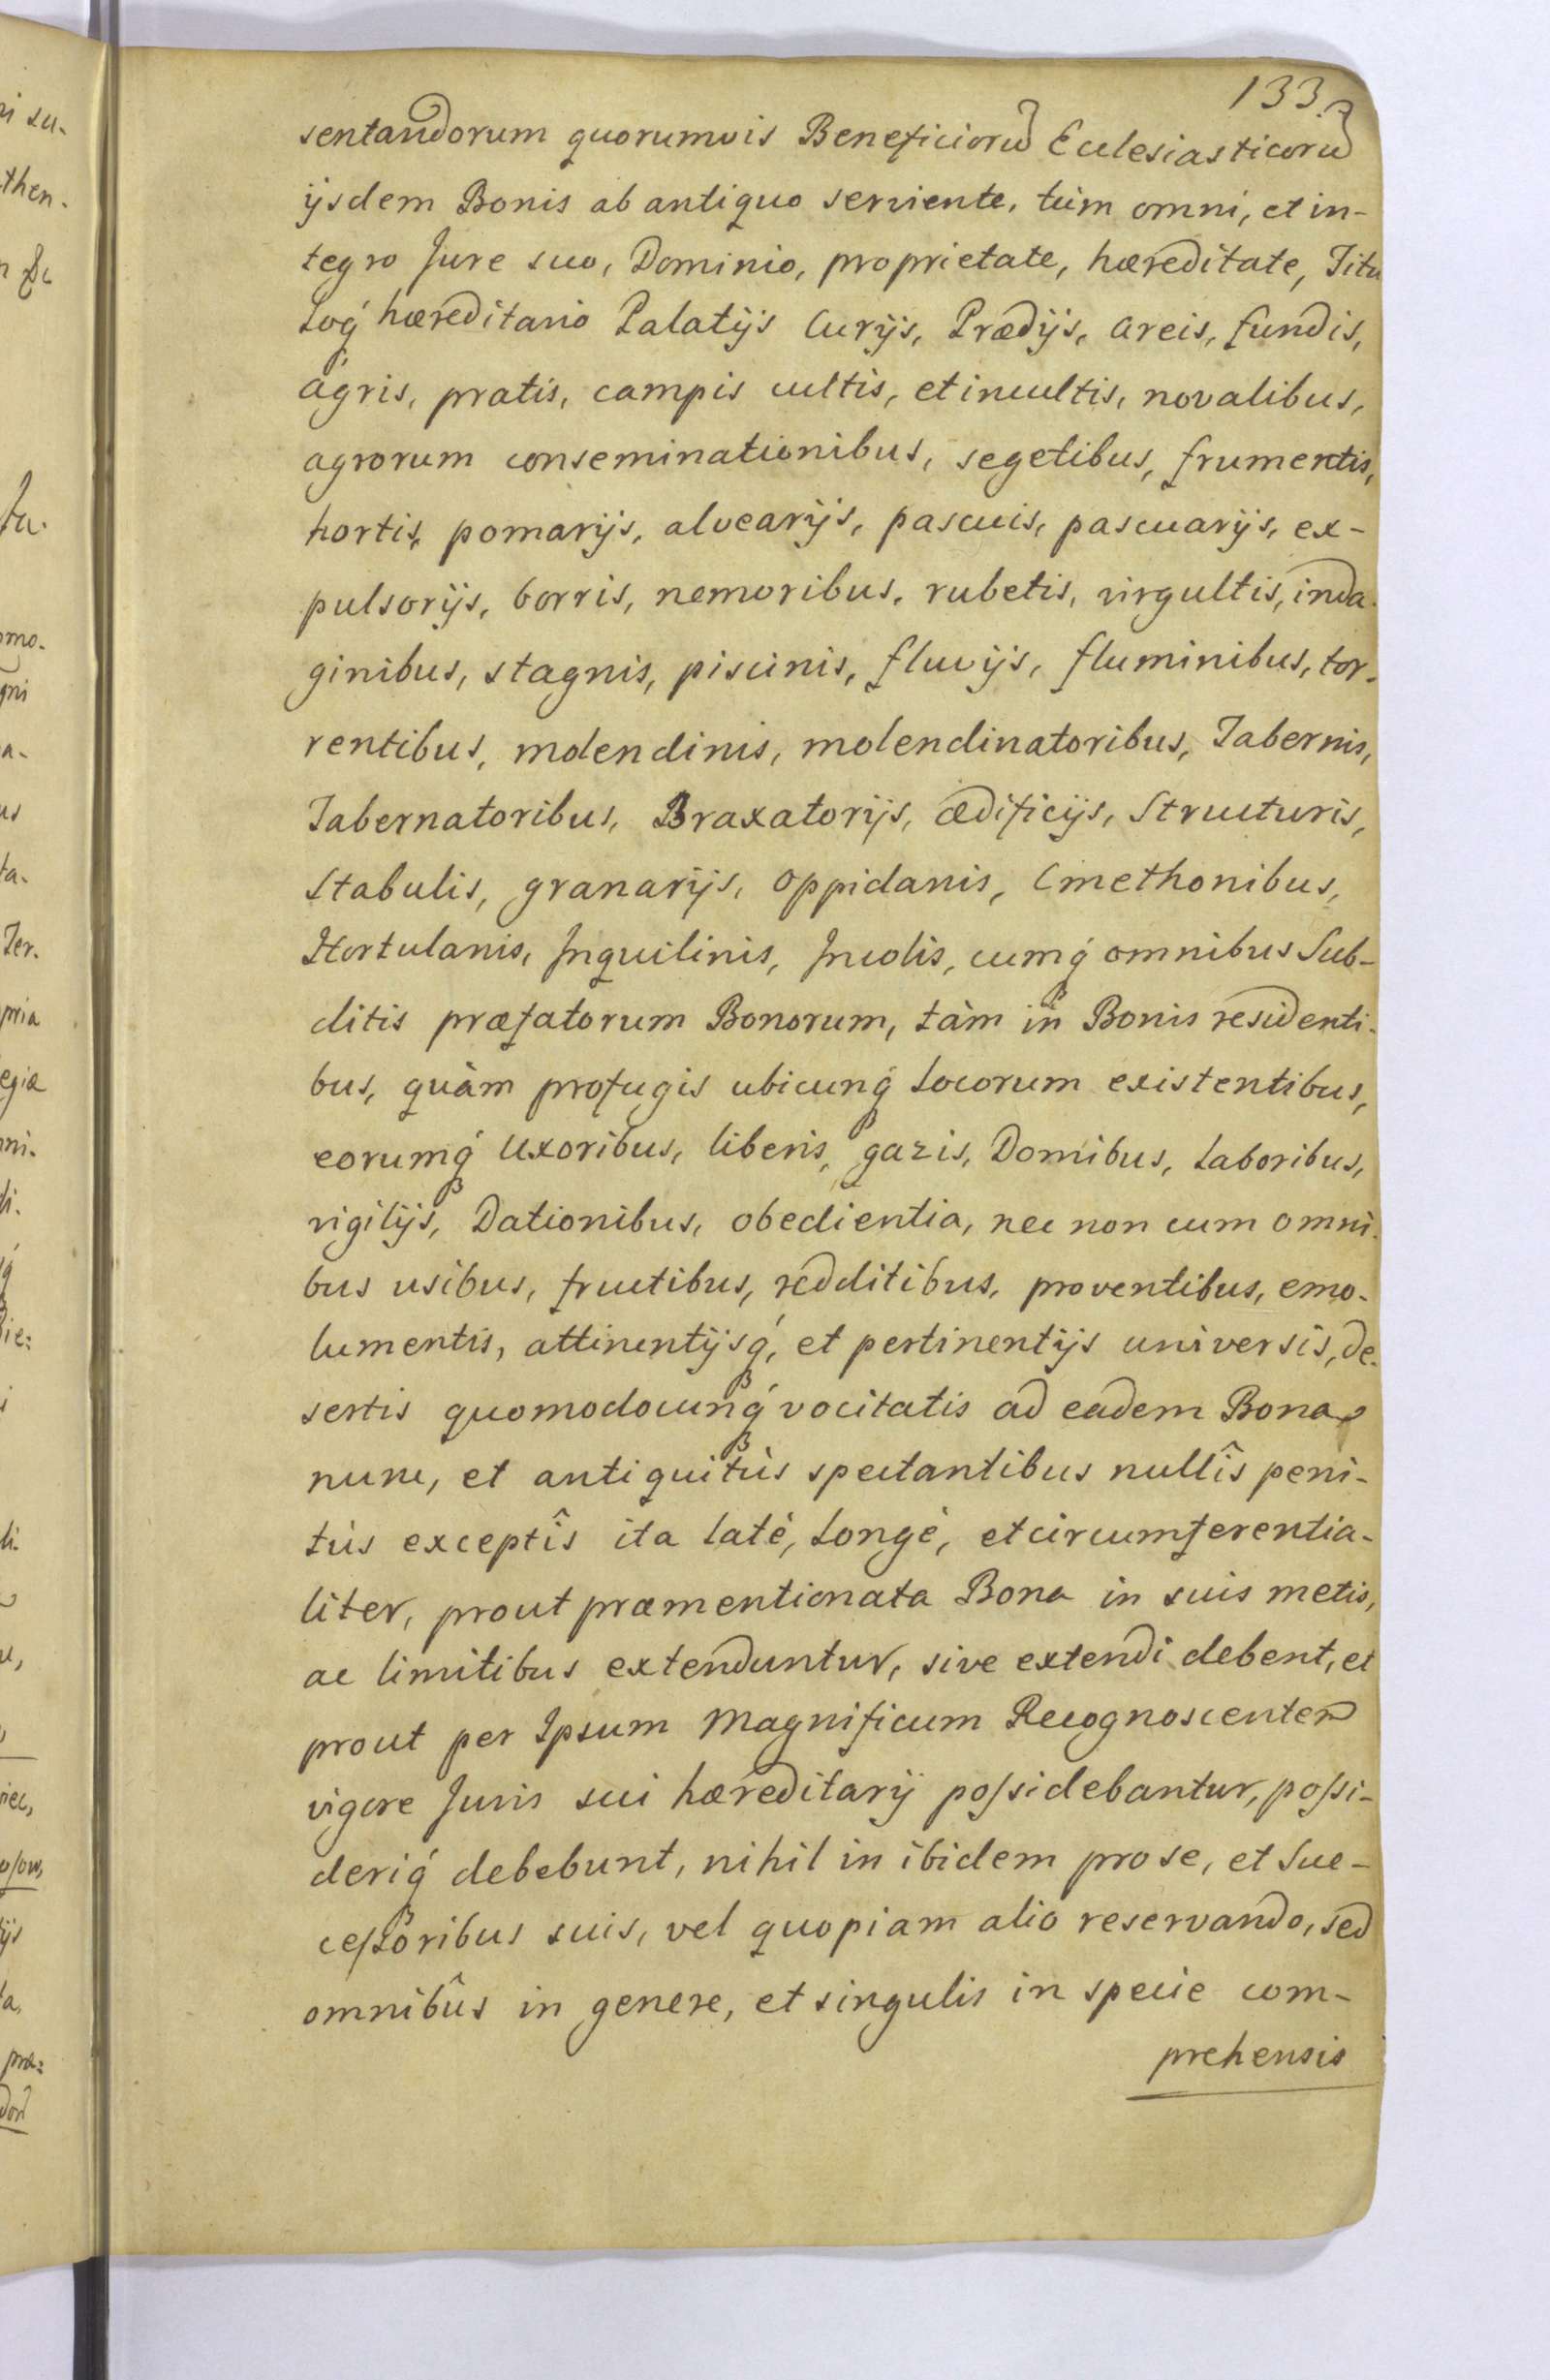 133.
sentandorum quorumvis Beneficiorū Ecclesiasticorū
ijsdem Bonis ab antiquo serviente, tùm omni, et in-
tegro Jure suo, Dominio, proprietate, hæreditate, Titu
loq́ hæreditario Palatijs Curijs, Prædijs, areis, fundis,
agris, pratis, campis cultis, et incultis, novalibus,
agrorum conseminationibus, segetibus, frumentis,
hortis, pomarijs, alvearijs, pascuis, pascuarijs, ex-
pulsorijs, borris, nemoribus, rubetis, virgultis, inda-
ginibus, stagnis, piscinis, fluvijs, fluminibus, tor-
rentibus, molendinis, molendinatoribus, Tabernis,
Tabernatoribus, Braxatorijs, ædificijs, Structuris,
Stabulis, granarijs, oppidanis, Cmethonibus,
Hortulanis, Inquilinis, Incolis, cumq́ omnibus Sub-
ditis præfatorum Bonorum, tàm in Bonis residenti-
bus, quàm profugis ubicunq́ locorum existentibus,
eorumq́ Uxoribus, liberis, gazis, Domibus, laboribus,
vigilijs, Dationibus, obedientia, nec non cum omni-
bus usibus, fructibus, redditibus, proventibus, emo-
lumentis, attinentijsq́, et pertinentijs universis, de-
sertis quomodocunq́ vocitatis ad eadem Bona
nunc, et antiquitùs spectantibus nullîs peni-
tùs exceptîs ita latè, longè, et circumferentia-
liter, prout præmentionata Bona in suis metis,
ac limitibus extenduntur, sive extendi debent, et
prout per Ipsum Magnificum Recognoscentem
vigore Juris sui hæreditarij possidebantur, possi-
deriq́ debebunt, nihil in ibidem pro se, et Suc-
cessoribus suis, vel quopiam alio reservando, sed
omnibûs in genere, et singulis in specie com-
prehensis